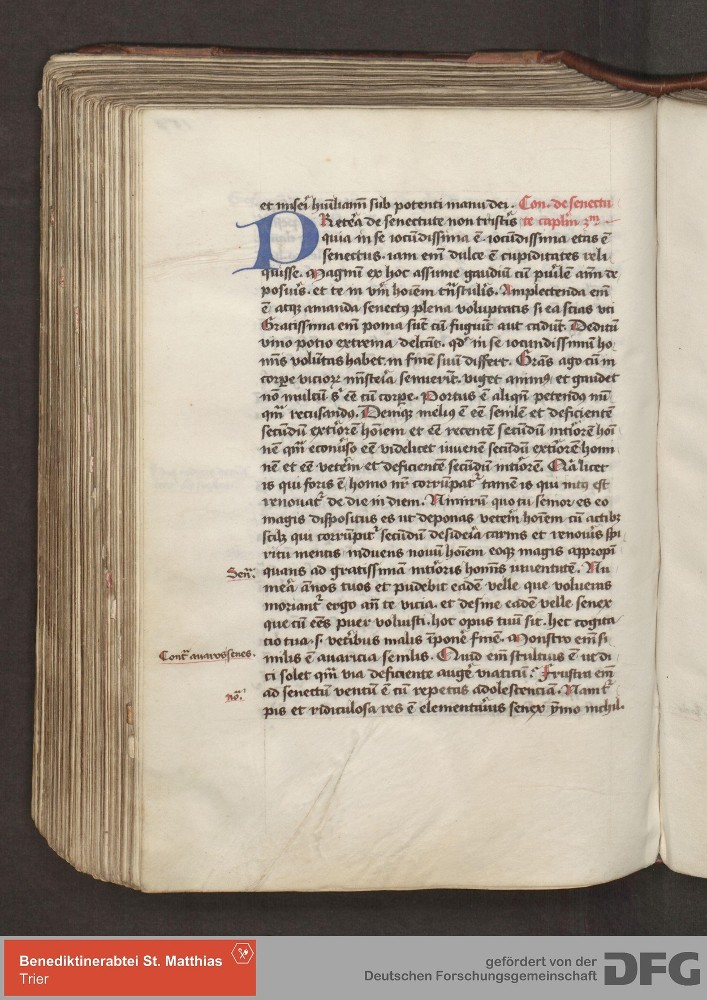 et miseri humiliamini sub potenti manu dei. Con. de senectu
PReterea de senectute non tristis te caplm 2m
quia in se iocundissima ē. iocundissima etas ē
senectus. iam eni dulce ē cupiditates reli
quisse. Magnum ex hoc assume gaudiū cū puilem am̄ de
posuis. et te in vm hoiem tn̄stulis. Amplectenda em̄
ē atqz amanda senectus plena voluptatis si ea scias uti
Gratissima em̄ poma sūt cū fugiūt aut cadūt. Deditū
vino potio extrema delcāt. qd' in se iocundissimū ho
mīs volūtas habet. in fine suū differt. Grās ago cū in
corpe vicior mīsteia senuerūt. viget animus et gaudet
nō multū s' eē cū corpe. Portus ē aliqn̄ petendus nū
qm̄ recusandus. Deniqz melius ē eē senilē et deficientē
secūdū extiorē hoiem et eē recentē secūdū intiorē hoi
nē qm̄ econūso eē videlicet iuvenē secūdū extiorē homi
nē et eē vetem et deficientē secūdū intiorē. Nā licet
is qui foris ē homo nr̄ corrūpat' tamē is qui intus est
renouat' de die in diem. Nimirū quo tu senior es eo
magis dispositus es ut deponas vetem hoiem cū actibz
suis qui corrūpit' secūdū desideia carnis et renouis spi
ritu mentis induens nouū hoiem eoqz magis appropi
quans ad gratissimā intioris homīs iuuentutē. Nu
Sen̄.
mea ānos tuos et pudebit eadē velle que volueras
moriant' ergo an̄ te vicia. et desine eadē velle senex
que cū eēs puer voluisti. hoc opus tuū sit. hec cogita
tio tua. s. vetibus malis īponē fine. Monstro em̄ si
Cont' auaros senes.
milis ē auaricia senilis. Quid em̄ stultius ē ut di
ci solet qm̄ via deficiente augē viaticū. Frustra em̄
ad senectū ventū ē cū repetas adolescenciam. Nam t'
no.
pis et ridiculosa res ē elementarius senex ymo nichil.
Benediktinerabtei St. Matthias
Trier
gefördert von der
Deutschen Forschungsgemeinschaft
DFG